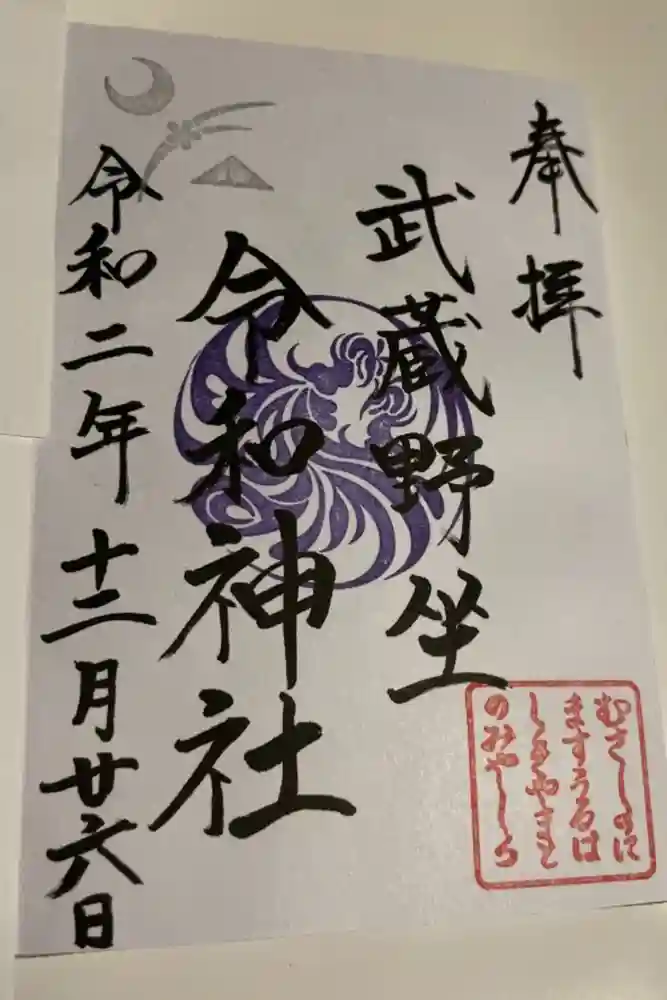 奉拝
武蔵野坐
令和神社
令和二年十二月廿六日
むさしのに
ますうるは
しきやまと
のみやしろ